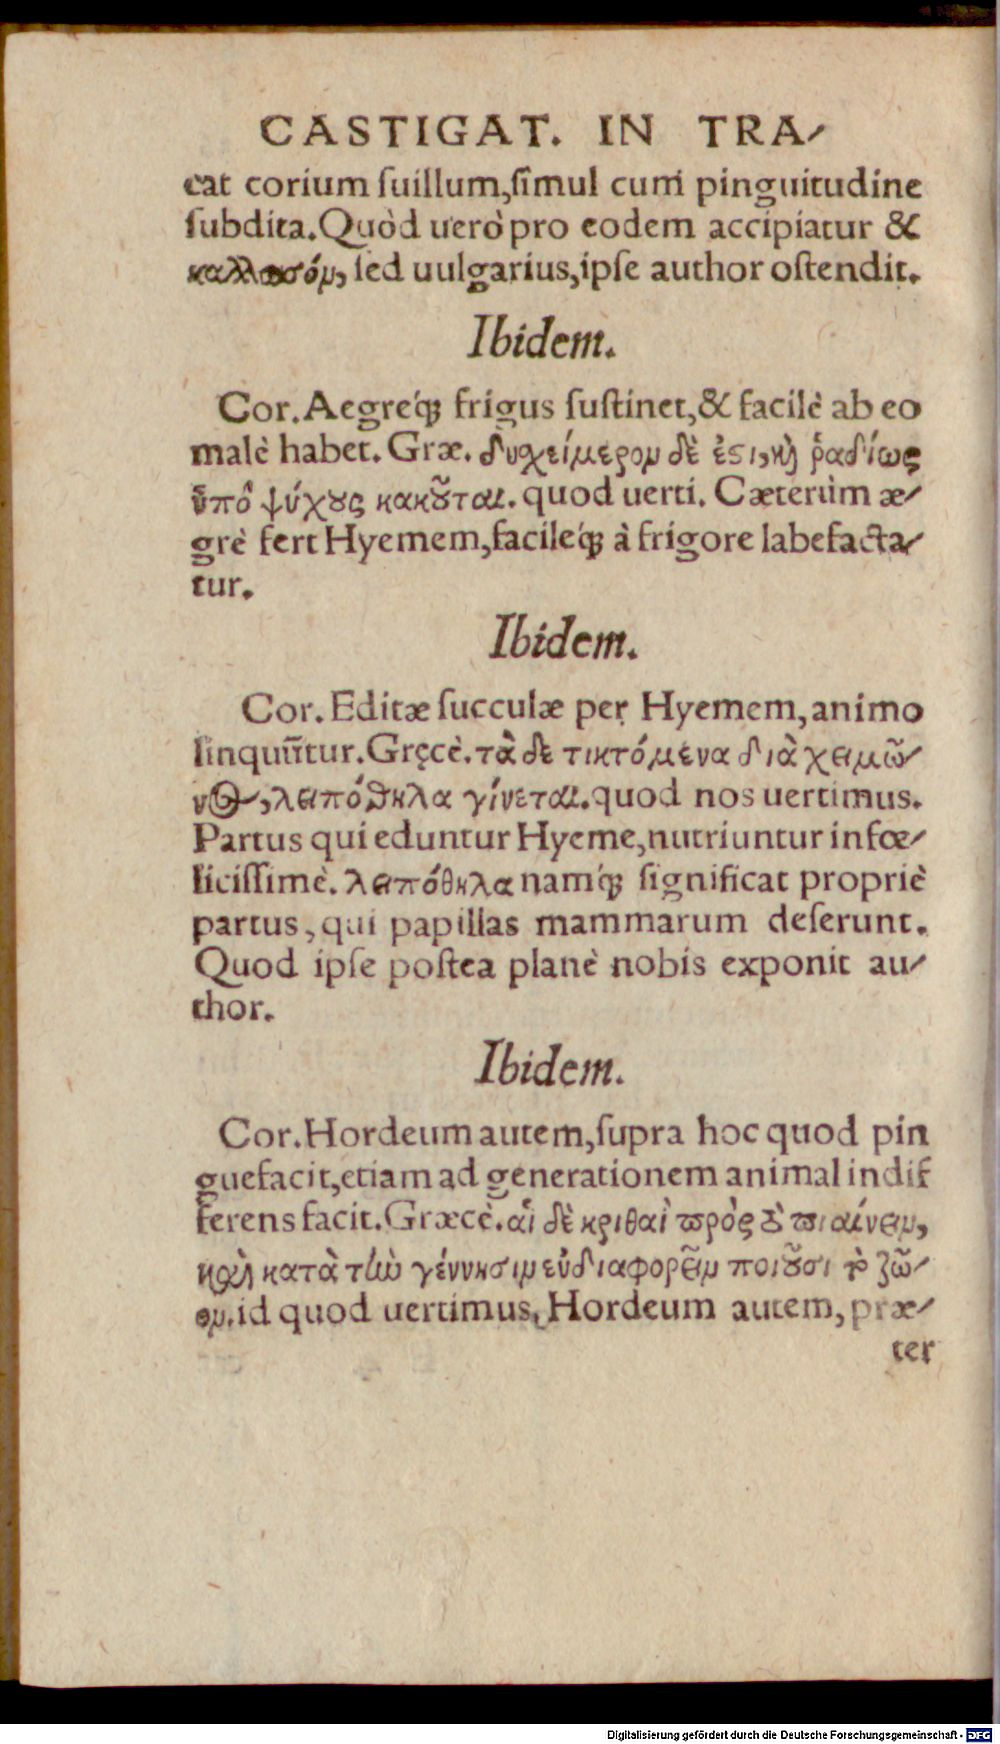 CASTIGAT. IN TRA-
eat corium ſuillum, ſimul cum pinguitudine
ſubdita. Quòd uerò pro eodem accipiatur &
ſed uulgarius, ipſe author oſtendit.
Ibidem.
Cor. Aegreq́; frigus ſuſtinet, & facilè ab eo
malè habet. Græ. δυχείμερον δὲ ἐϛι, κὴ ῥαδίως
ὑπὸ ψύχους κακοῦται. quod uerti. Cæterùm æ-
grè fert Hyemem, facileq́; à frigore labefacta-
tur.
Ibidem.
Cor. Editæ ſucculæ per Hyemem, animo
linquũtur. Gręcè. τὰ δὲ τικτόμενα διὰ χειμῶ-
νος, λειπόθηλα γίνεται. quod nos uertimus.
Partus qui eduntur Hyeme, nutriuntur infœ-
liciſſimè. λειπόθηλα namq́; ſignificat propriè
partus, qui papillas mammarum deſerunt.
Quod ipſe poſtea planè nobis exponit au-
thor.
Ibidem.
Cor. Hordeum autem, ſupra hoc quod pin
guefacit, etiam ad generationem animal indif
ferens facit. Græcè. αἱ δὲ κριθαὶ πρὸς τὸ πιαίνειν,
καὶ κατὰ τὴν γέννησιν εὐδιαφορεῖν ποιοῦσι τὸ ζῶ-
ον. id quod uertimus, Hordeum autem, præ-
ter
Digitalisierung gefördert durch die Deutsche Forschungsgemeinschaft - DFG